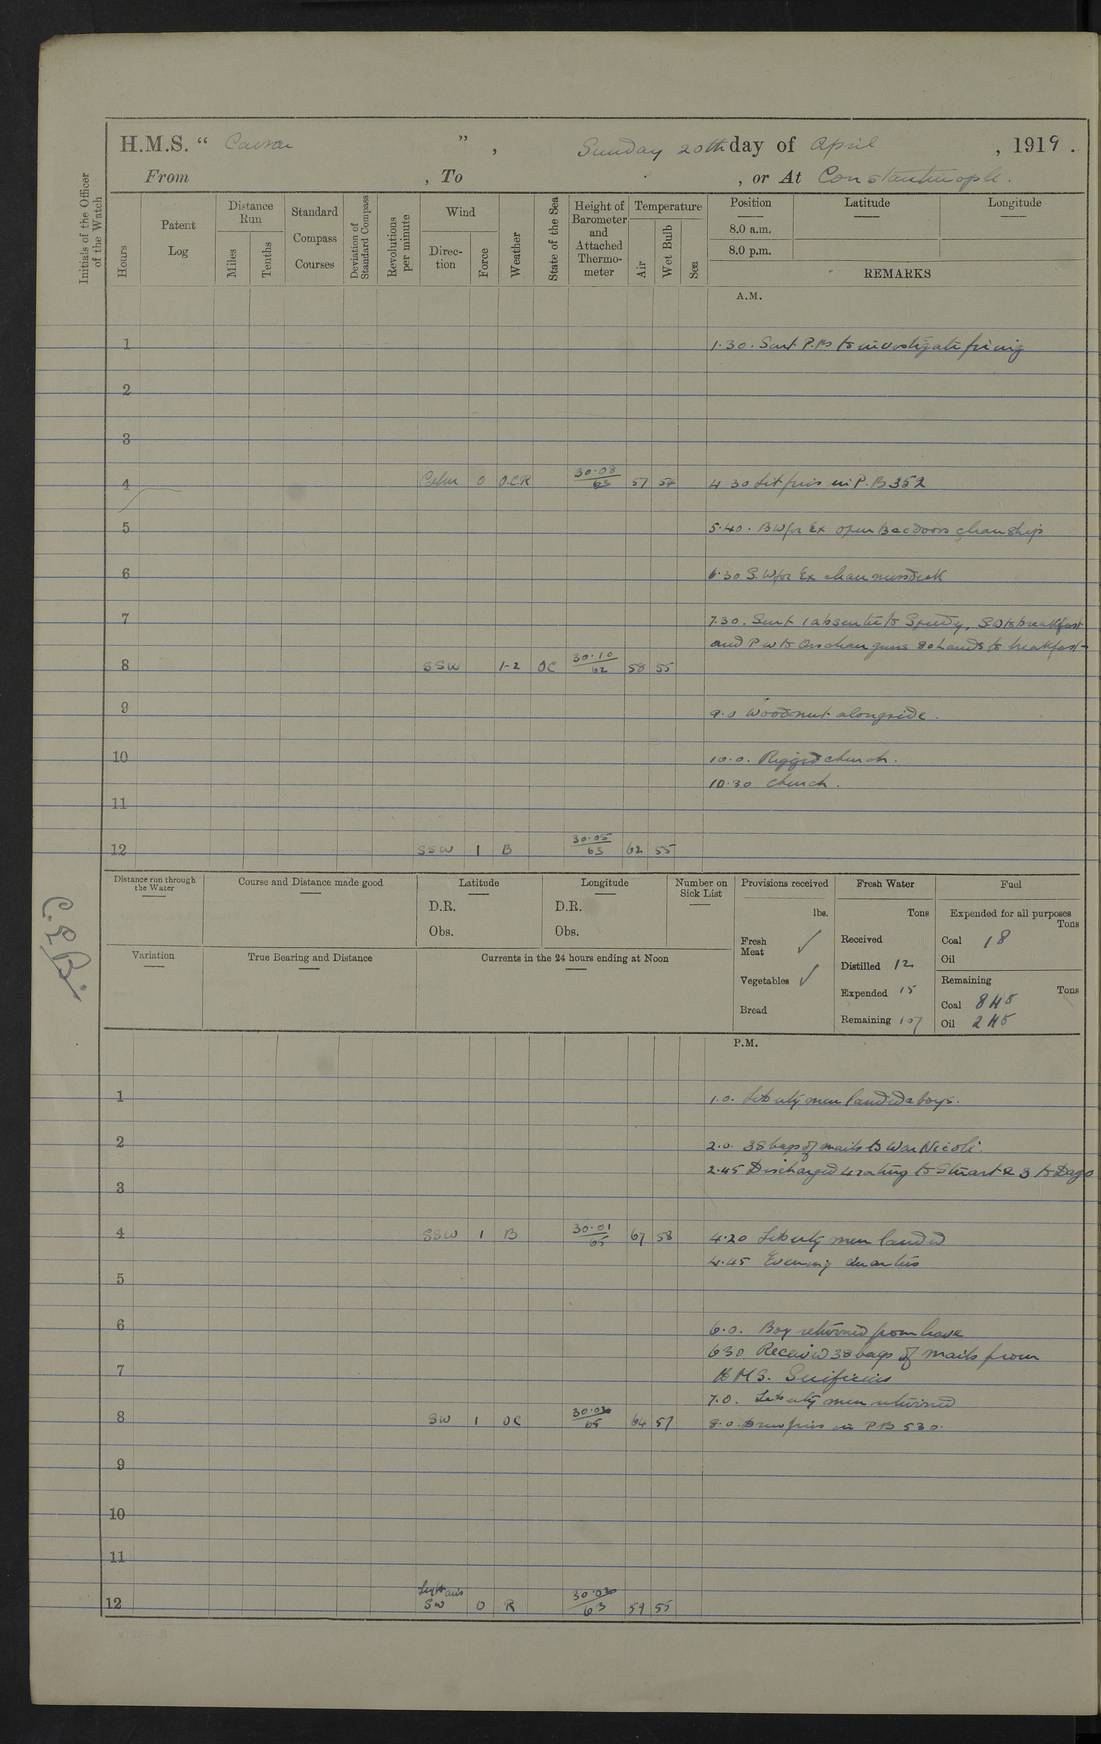 H.M.S. " Caesar ", Sunday 20th day of April, 1919.
From , To , or At Constantinople.
Initials of the Officer of the Watch
Hours
Patent Log
Distance Run
Miles
Tenths
Standard Compass Courses
Deviation of Standard Compass
Revolutions per minute
Wind
Direction
Force
Weather
State of the Sea
Height of Barometer and Attached Thermometer
Temperature
Air
Wet Bulb
Sea
Position Latitude Longitude
8.0 a.m.
8.0 p.m.
REMARKS
A.M.
1 1.30. Sent P.B to investigate firing
2
3
4 Calm 0 O.C.R 30.08/63 57 54 4 30 Lit fires in P.B 352
5 5.40. open doors clean ship
6 6.30 clean messdeck
7 7.30. Sent 1 absentee to Speedy. to breakfast
and clean guns hands to breakfast
8 SSW 1-2 OC 30.10/62 58 55
9 9.0 Woodnut alongside.
10 10.0. Rigged church.
10.30 Church.
11
12 SSW 1 B 30.05/63 62 55
Distance run through the Water
Course and Distance made good
Latitude
D.R.
Obs.
Longitude
D.R.
Obs.
Number on Sick List
Provisions received
lbs.
Fresh Meat ✓
Vegetables ✓
Bread
Fresh Water
Tons
Received
Distilled 12
Expended 15
Remaining 107
Fuel
Expended for all purposes
Tons
Coal 18
Oil
Remaining
Tons
Coal 845
Oil 245
Variation
True Bearing and Distance
Currents in the 24 hours ending at Noon
C.E.B.
P.M.
1 1.0. Liberty men landed & boys.
2 2.0. 38 bags of mails to War
2.45 Discharged 4 rating to Stuart & 3 to Dago
3
4 SSW 1 B 30.01/65 67 58 4.20 Liberty men landed
4.45 Evening Quarters
5
6 6.0. Boy returned from leave
6 30 Received 38 bags of mails from
7 H.M.S.
7.0. Liberty men returned
8 SW 1 OC 65 64 57 8.0. fires in PB 530.
9
10
11
12 Light airs SW 0 R 63 59 55